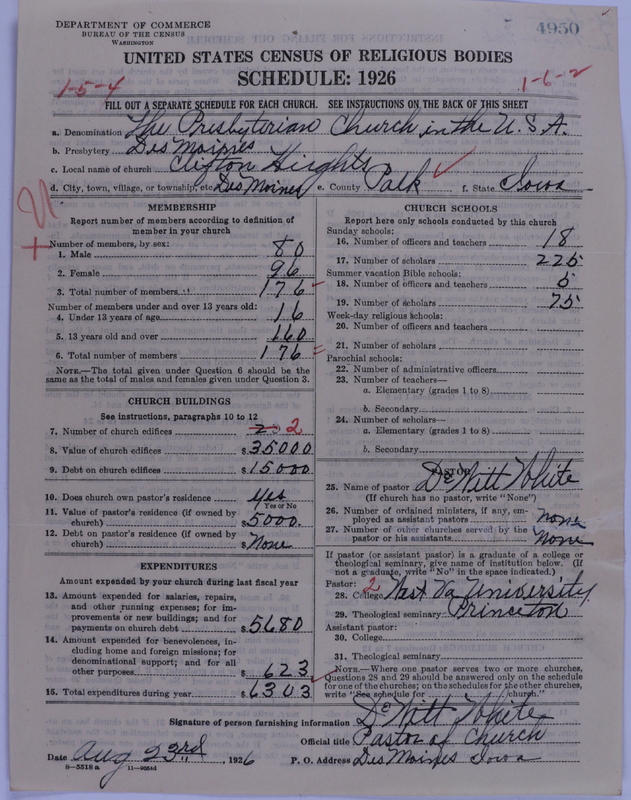 DEPARTMENT OF COMMERCE
BUREAU OF THE CENSUS
WASHINGTON
4950
UNITED STATES CENSUS OF RELIGIOUS BODIES
SCHEDULE: 1926
1-5-4
1-6-2
FILL OUT A SEPARATE SCHEDULE FOR EACH CHURCH. SEE INSTRUCTIONS ON THE BACK OF THIS SHEET
a. Denomination The Presbyterian Church in the U.S.A.
b. Presbytery Des Moines
c. Local name of church Clifton Heights
d. City, town, village, or township, etc. Des Moines e. County Polk f. State Iowa
MEMBERSHIP
Report number of members according to definition of
member in your church
Number of members, by sex:
1. Male 80
2. Female 96
3. Total number of members 176
Number of members under and over 13 years old:
4. Under 13 years of age 16
5. 13 years old and over 160
6. Total number of members 176
NOTE.—The total given under Question 6 should be
same as the total of males and females given under Question 3.
CHURCH BUILDINGS
See instructions, paragraphs 10 to 12
7. Number of church edifices 2
8. Value of church edifices $35000
9. Debt on church edifices $15000
10. Does church own pastor's residence Yes
Yes or No
11. Value of pastor's residence (if owned by
church) $5000.
12. Debt on pastor's residence (if owned by
church) $None
EXPENDITURES
Amount expended by your church during last fiscal year
13. Amount expended for salaries, repairs,
and other running expenses; for im-
provements or new buildings; and for
payments on church debt $5680
14. Amount expended for benevolences, in-
cluding home and foreign missions; for
denominational support; and for all
other purposes $623
15. Total expenditures during year $6303
CHURCH SCHOOLS
Report here only schools conducted by this church
Sunday schools:
16. Number of officers and teachers 18
17. Number of scholars 225
Summer vacation Bible schools:
18. Number of officers and teachers 5
19. Number of scholars 75
Week-day religious schools:
20. Number of officers and teachers
21. Number of scholars
Parochial schools:
22. Number of administrative officers
23. Number of teachers—
a. Elementary (grades 1 to 8)
b. Secondary
24. Number of scholars—
a. Elementary (grades 1 to 8)
b. Secondary
PASTOR
25. Name of pastor DeWitt White
(If church has no pastor, write "None")
26. Number of ordained ministers, if any, em-
ployed as assistant pastors none
27. Number of other churches served by the
pastor or his assistants None
If pastor (or assistant pastor) is a graduate of a college or
theological seminary, give name of institution below. (If
not a graduate, write "No" in the space indicated.)
Pastor: 2
28. College West Va University
29. Theological seminary Princeton
Assistant pastor:
30. College
31. Theological seminary
NOTE.—Where one pastor serves two or more churches,
Questions 28 and 29 should be answered only on the schedule
for one of the churches; on the schedules for the other churches,
write "See schedule for church."
Signature of person furnishing information DeWitt White
Official title Pastor of Church
Date Aug 23rd, 1926 P. O. Address Des Moines Iowa
8-5518 a